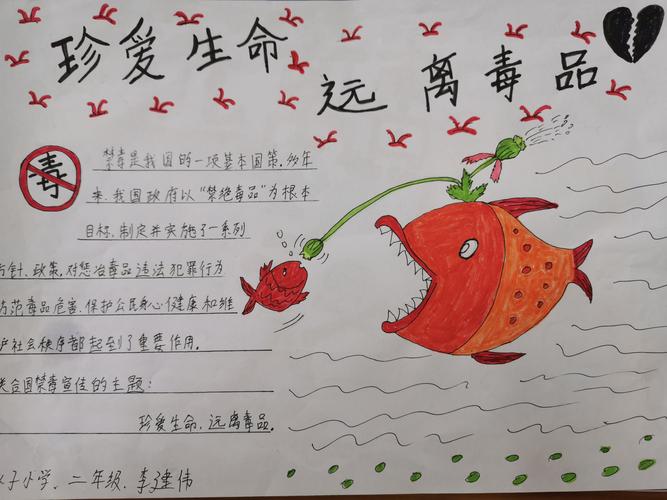 珍爱生命
远离毒品
毒
禁毒是我国的一项基本国策，多年
来，我国政府以“禁绝毒品”为根本
目标，制定并实施了一系列
方针、政策，对惩治毒品违法犯罪行为
防范毒品危害、保护公民身心健康和维
护社会秩序都起到了重要作用。
联合国禁毒宣传的主题：
珍爱生命、远离毒品。
子小学、二年级、李建伟